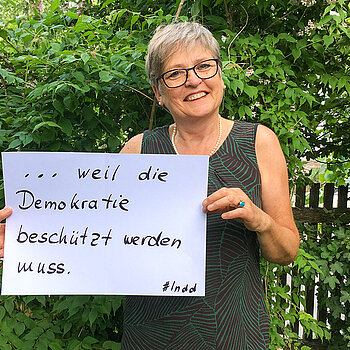 ... weil die
Demokratie
beschützt werden
muss.
#Indd